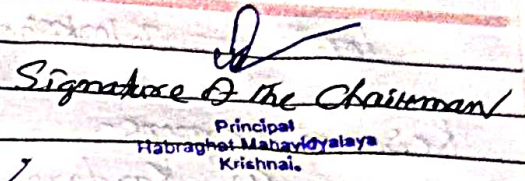 Signature of the Chairman
Principal
Habraghat Mahavidyalaya
Krishnai.